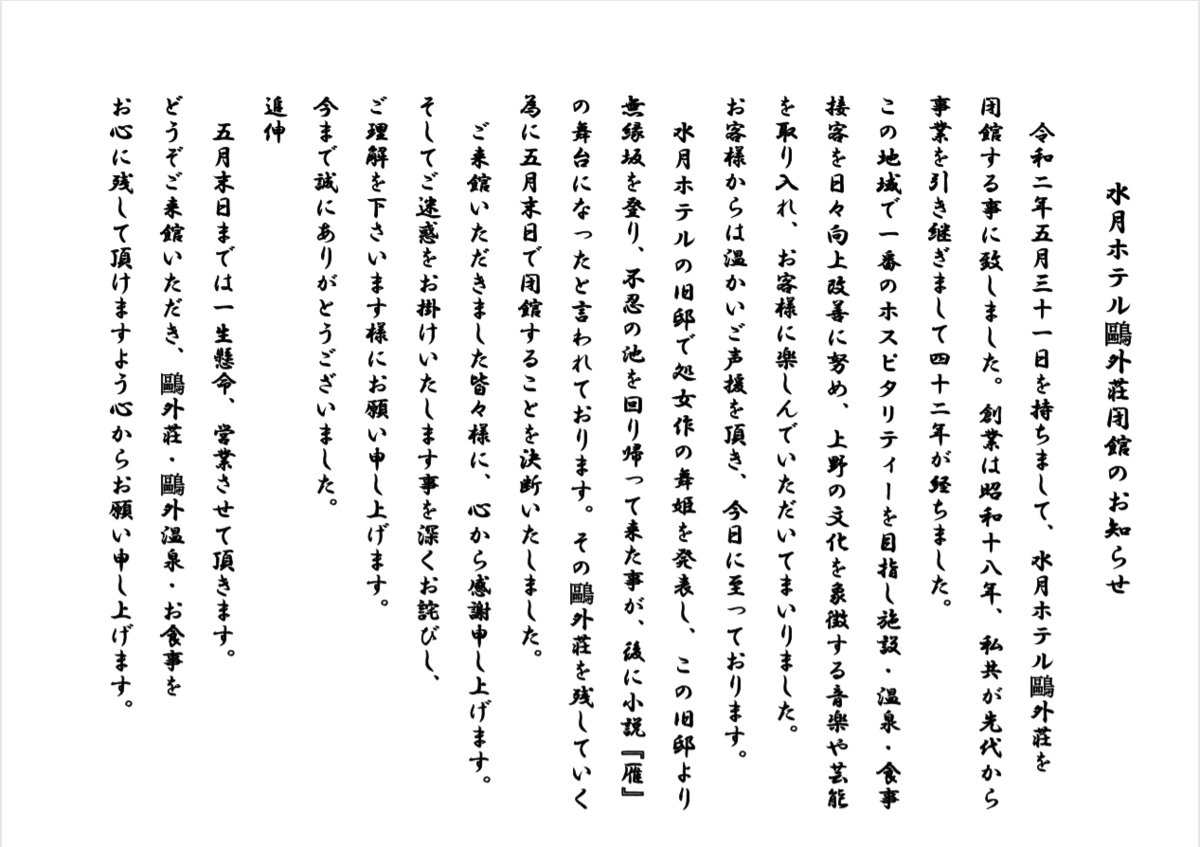 水月ホテル鷗外荘閉館のお知らせ
令和二年五月三十一日を持ちまして、水月ホテル鷗外荘を
閉館する事に致しました。創業は昭和十八年、私共が先代から
事業を引き継ぎまして四十二年が経ちました。
この地域で一番のホスピタリティーを目指し施設・温泉・食事
接客を日々向上改善に努め、上野の文化を象徴する音楽や芸能
を取り入れ、お客様に楽しんでいただいてまいりました。
お客様からは温かいご声援を頂き、今日に至っております。
水月ホテルの旧邸で処女作の舞姫を発表し、この旧邸より
無縁坂を登り、不忍の池を回り帰って来た事が、後に小説『雁』
の舞台になったと言われております。その鷗外荘を残していく
為に五月末日で閉館することを決断いたしました。
ご来館いただきました皆々様に、心から感謝申し上げます。
そしてご迷惑をお掛けいたします事を深くお詫びし、
ご理解を下さいます様にお願い申し上げます。
今まで誠にありがとうございました。
追伸
五月末日までは一生懸命、営業させて頂きます。
どうぞご来館いただき、鷗外荘・鷗外温泉・お食事を
お心に残して頂けますよう心からお願い申し上げます。